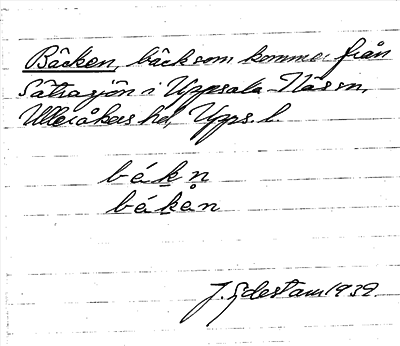 Bäcken, bäck som kommer från
Sätrasjön i Uppsala-Näs sn,
Ulleråkers hd, Upps. l.
békn
békån
J. Sdestam 1932.